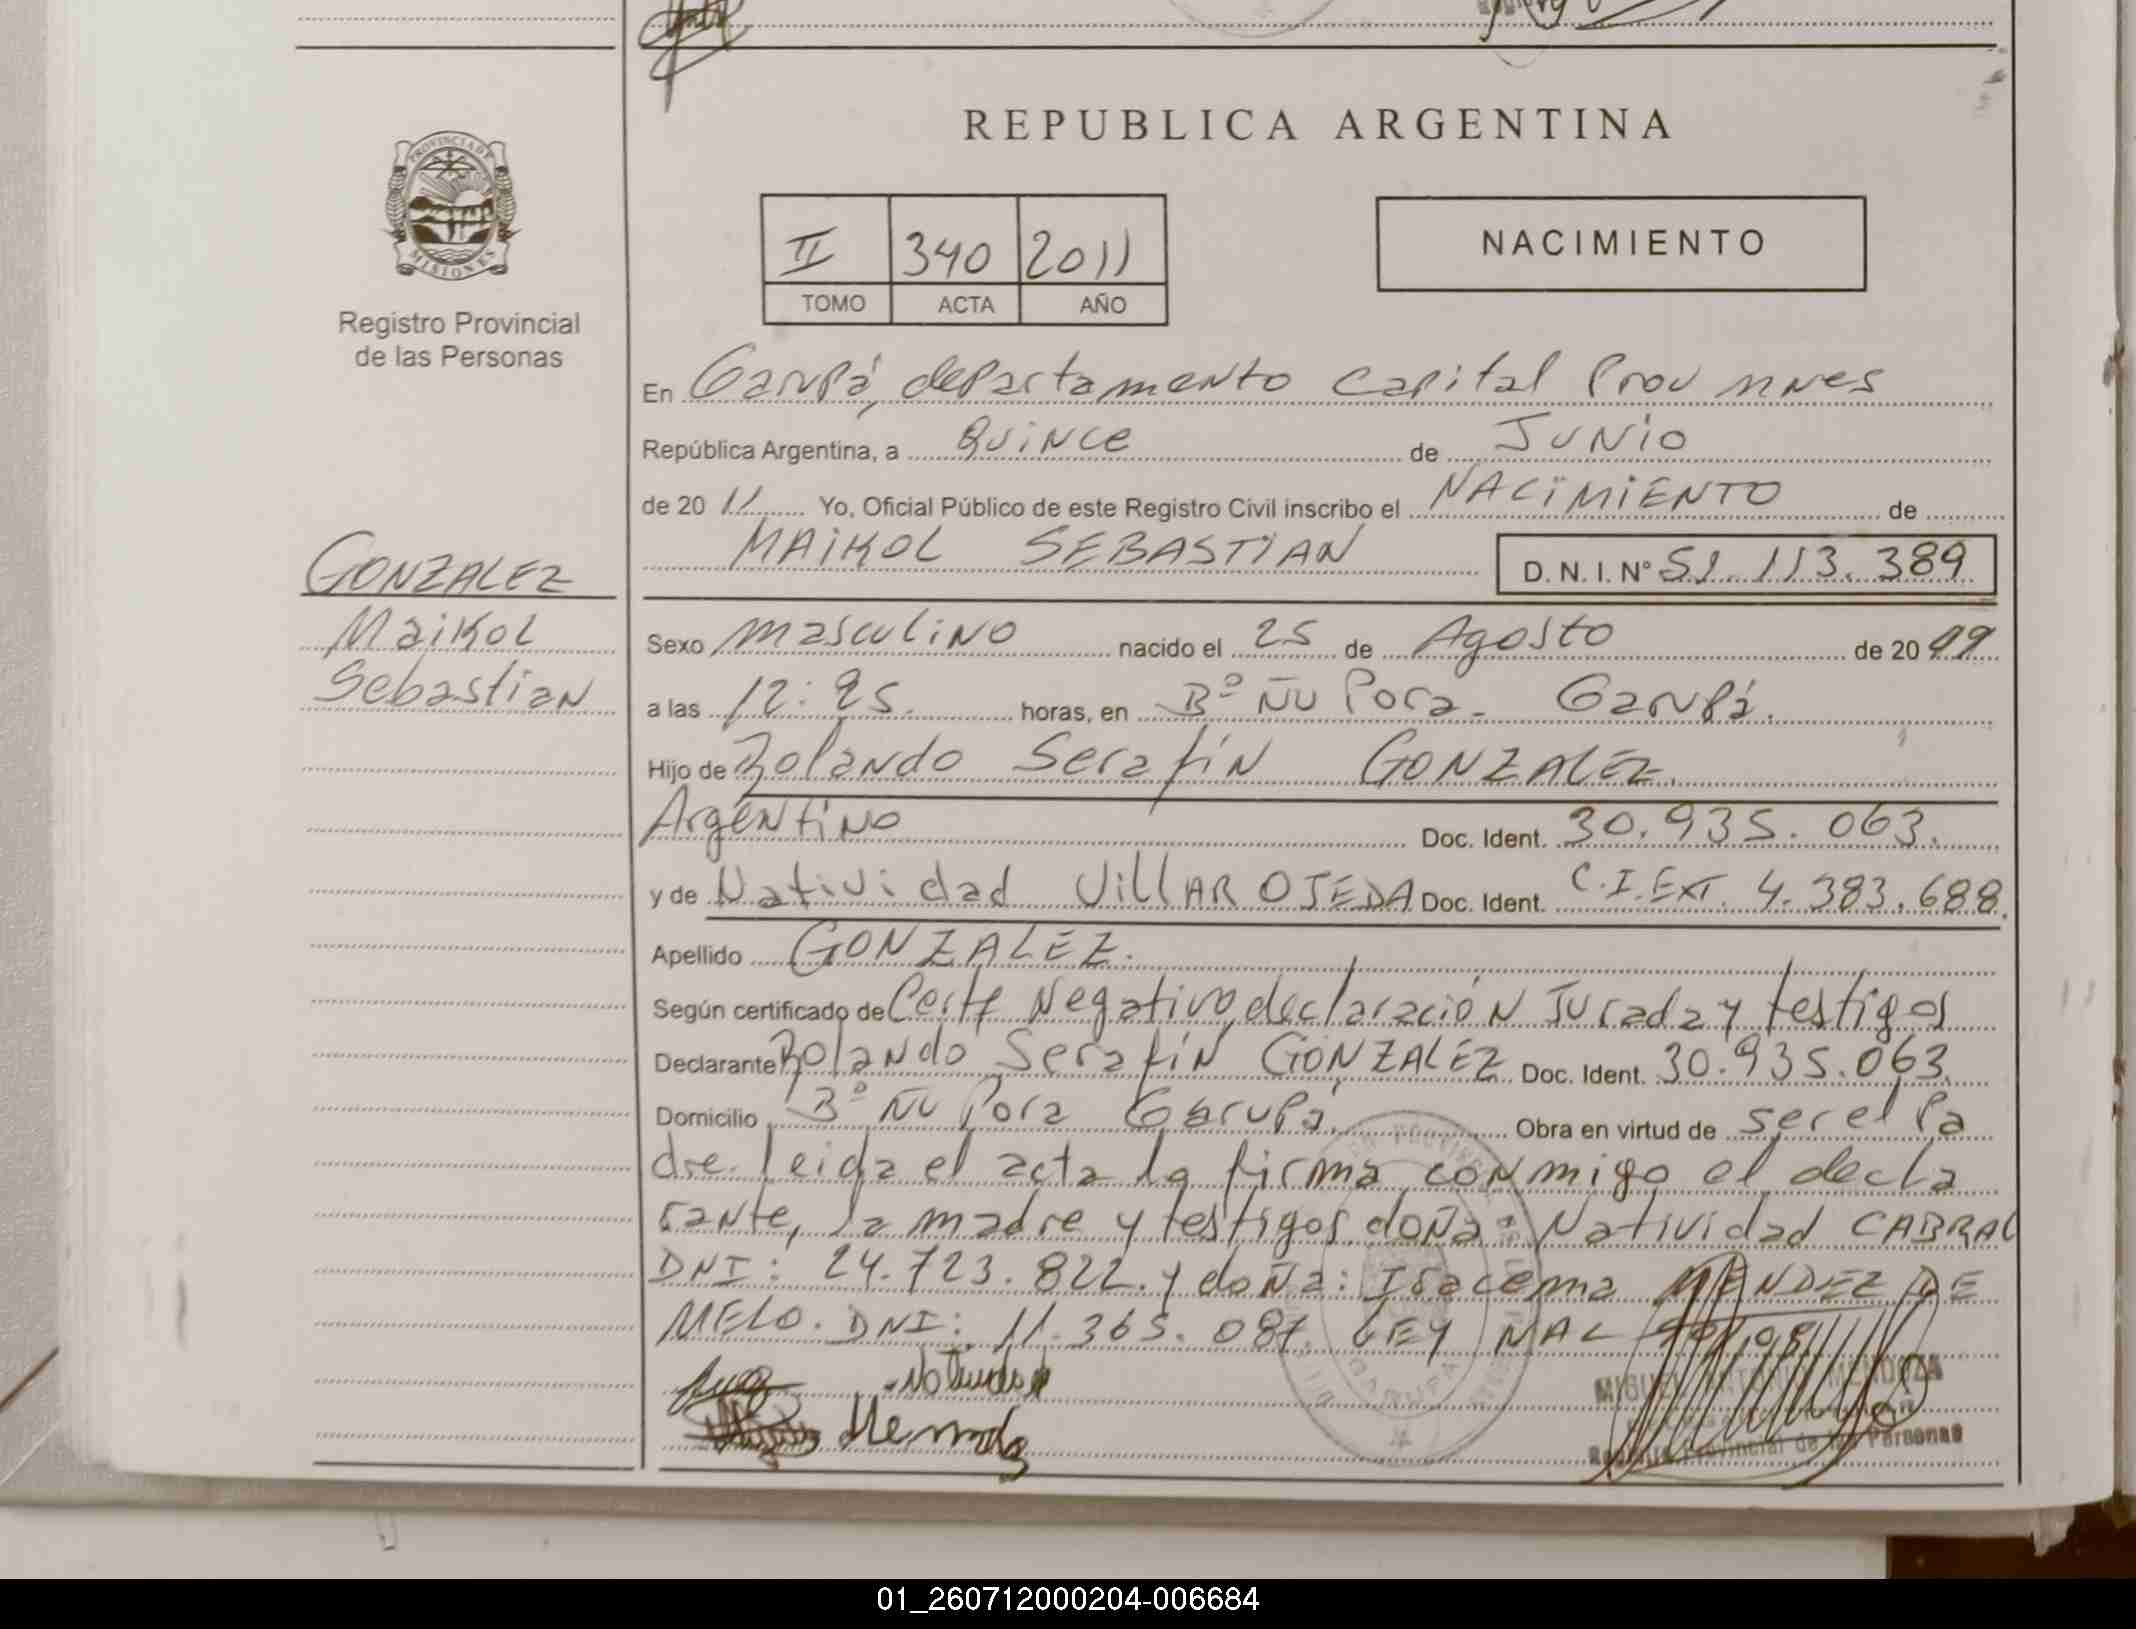 REPUBLICA ARGENTINA
PROVINCIA DE
MISIONES
Registro Provincial
de las Personas
II 340 2011
TOMO ACTA AÑO
NACIMIENTO
En Garupá, departamento Capital Prov mnes
República Argentina, a Quince de JUNIO
de 20 11 Yo, Oficial Público de este Registro Civil inscribo el NACIMIENTO de
MAIKOL SEBASTIAN D. N. I. N° 51.113.389
GONZALEZ
Maikol
Sebastian
Sexo masculino nacido el 25 de Agosto de 20 09
a las 12:25. horas, en B° ÑU Pora - Garupá.
Hijo de Rolando Serafín GONZALEZ.
Argentino Doc. Ident. 30.935.063.
y de Natividad Villar OJEDA Doc. Ident. C.I.EXT. 4.383.688.
Apellido GONZALEZ.
Según certificado de Certf Negativo, declaración Jurada y testigos
Declarante Rolando Serafín GONZALEZ Doc. Ident. 30.935.063.
Domicilio B° ÑU Pora Garupá. Obra en virtud de ser el Pa
dre. leida el acta la firma conmigo el decla
rante, la madre y testigos doña: Natividad CABRAL
DNI: 24.723.822. y doña: Iracema MENDEZ DE
MELO. DNI: 11.365.087. LEY NAC
Natividad
MIGUEL ANTONIO MENDOZA
Registro Provincial de las Personas
GARUPA
01_260712000204-006684